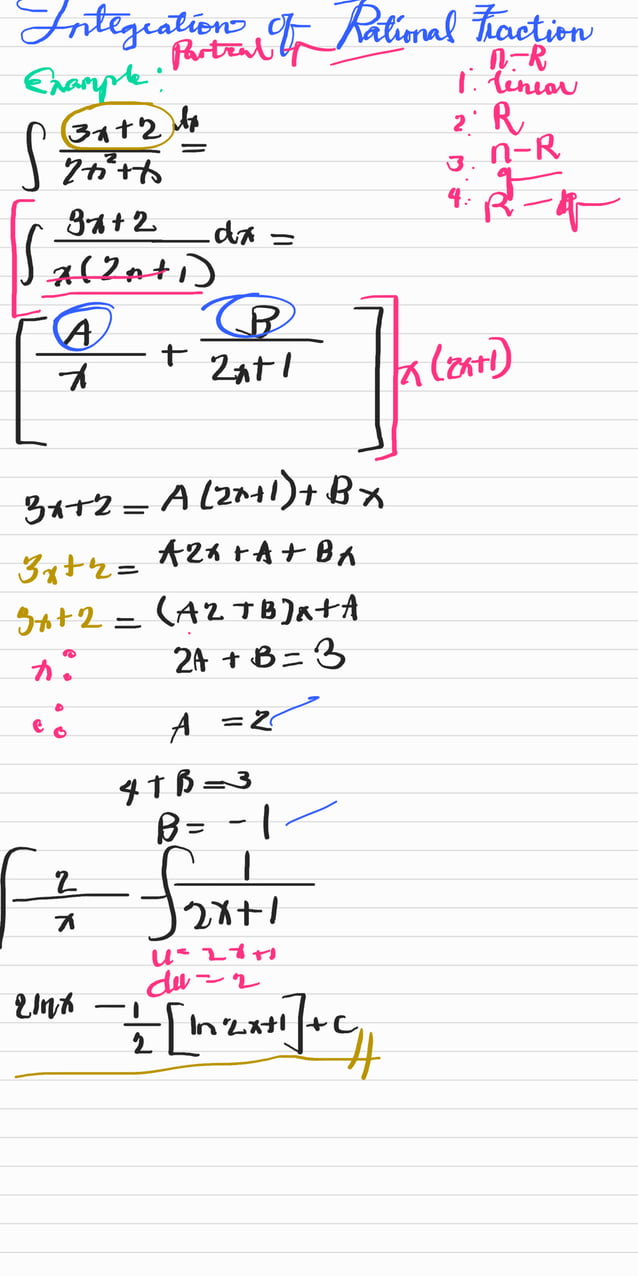 Integration of Rational Fraction
Partial
Example:
n-R
1. linear
2. R
3. n-R
q
4. R-q
∫ 3x+2 / 2x²+x dx =
∫ 3x+2 / x(2x+1) dx =
[ A / x + B / 2x+1 ] x(2x+1)
3x+2 = A(2x+1)+Bx
3x+2 = A2x+A+Bx
3x+2 = (A2+B)x+A
x: 2A+B=3
c: A =2
4+B=3
B= -1
∫ 2 / x - ∫ 1 / 2x+1
u= 2x+1
du=2
2lnx - 1/2 [ln2x+1]+C